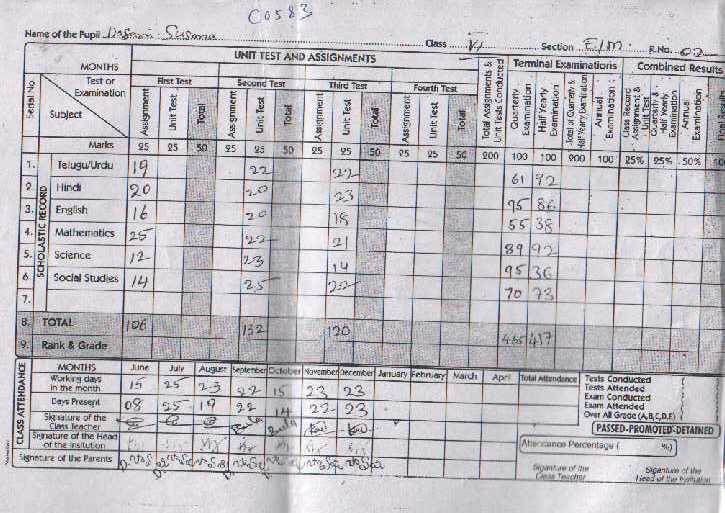 C0583
Name of the Pupil Susanna Class VI Section E/M. R.No. 02
UNIT TEST AND ASSIGNMENTS Terminal Examinations Combined Results
MONTHS
Test or Examination First Test Second Test Third Test Fourth Test
Serial No. Subject Assignment Unit Test Total Assignment Unit Test Total Assignment Unit Test Total Assignment Unit Test Total Total Assignments & Unit Tests Conducted Quarterly Examination Half Yearly Examination Total of Quarterly & Half Yearly Examination Annual Examination Class Record Assignment & Unit Test Quarterly & Half Yearly Examination Annual Examination
Marks 25 25 50 25 25 50 25 25 50 25 25 50 200 100 100 200 100 25% 25% 50%
SCHOLASTIC RECORD
1. Telugu/Urdu 19 22 22 61 92
2. Hindi 20 20 23 95 86
3. English 16 20 18 55 38
4. Mathematics 25 22 21 89 92
5. Science 12 23 14 95 36
6. Social Studies 14 25 22 70 73
7.
8. TOTAL 106 132 120 465 417
9. Rank & Grade
CLASS ATTENDANCE
MONTHS June July August September October November December January February March April Total Attendance
Working days in the month 15 25 23 22 15 23 23
Days Present 08 25 19 22 14 22 23
Signature of the Class Teacher
Signature of the Head of the Insitution
Signature of the Parents
Tests Conducted
Tests Attended
Exam Conducted
Exam Attended
Over All Grade (A,B,C,D,E)
PASSED-PROMOTED-DETAINED
Attendance Percentage ( %)
Signature of the Class Teacher Signature of the Head of the Institution